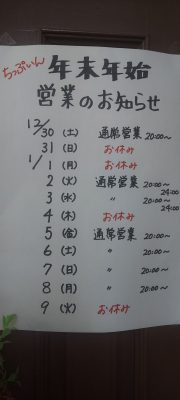 ちっぷいん
年末年始
営業のお知らせ
12/30 (土) 通常営業 20:00～
31 (日) お休み
1/1 (月) お休み
2 (火) 通常営業 20:00～24:00
3 (水) 〃 20:00～24:00
4 (木) お休み
5 (金) 通常営業 20:00～
6 (土) 〃 20:00～
7 (日) 〃 20:00～
8 (月) 〃 20:00～
9 (火) お休み